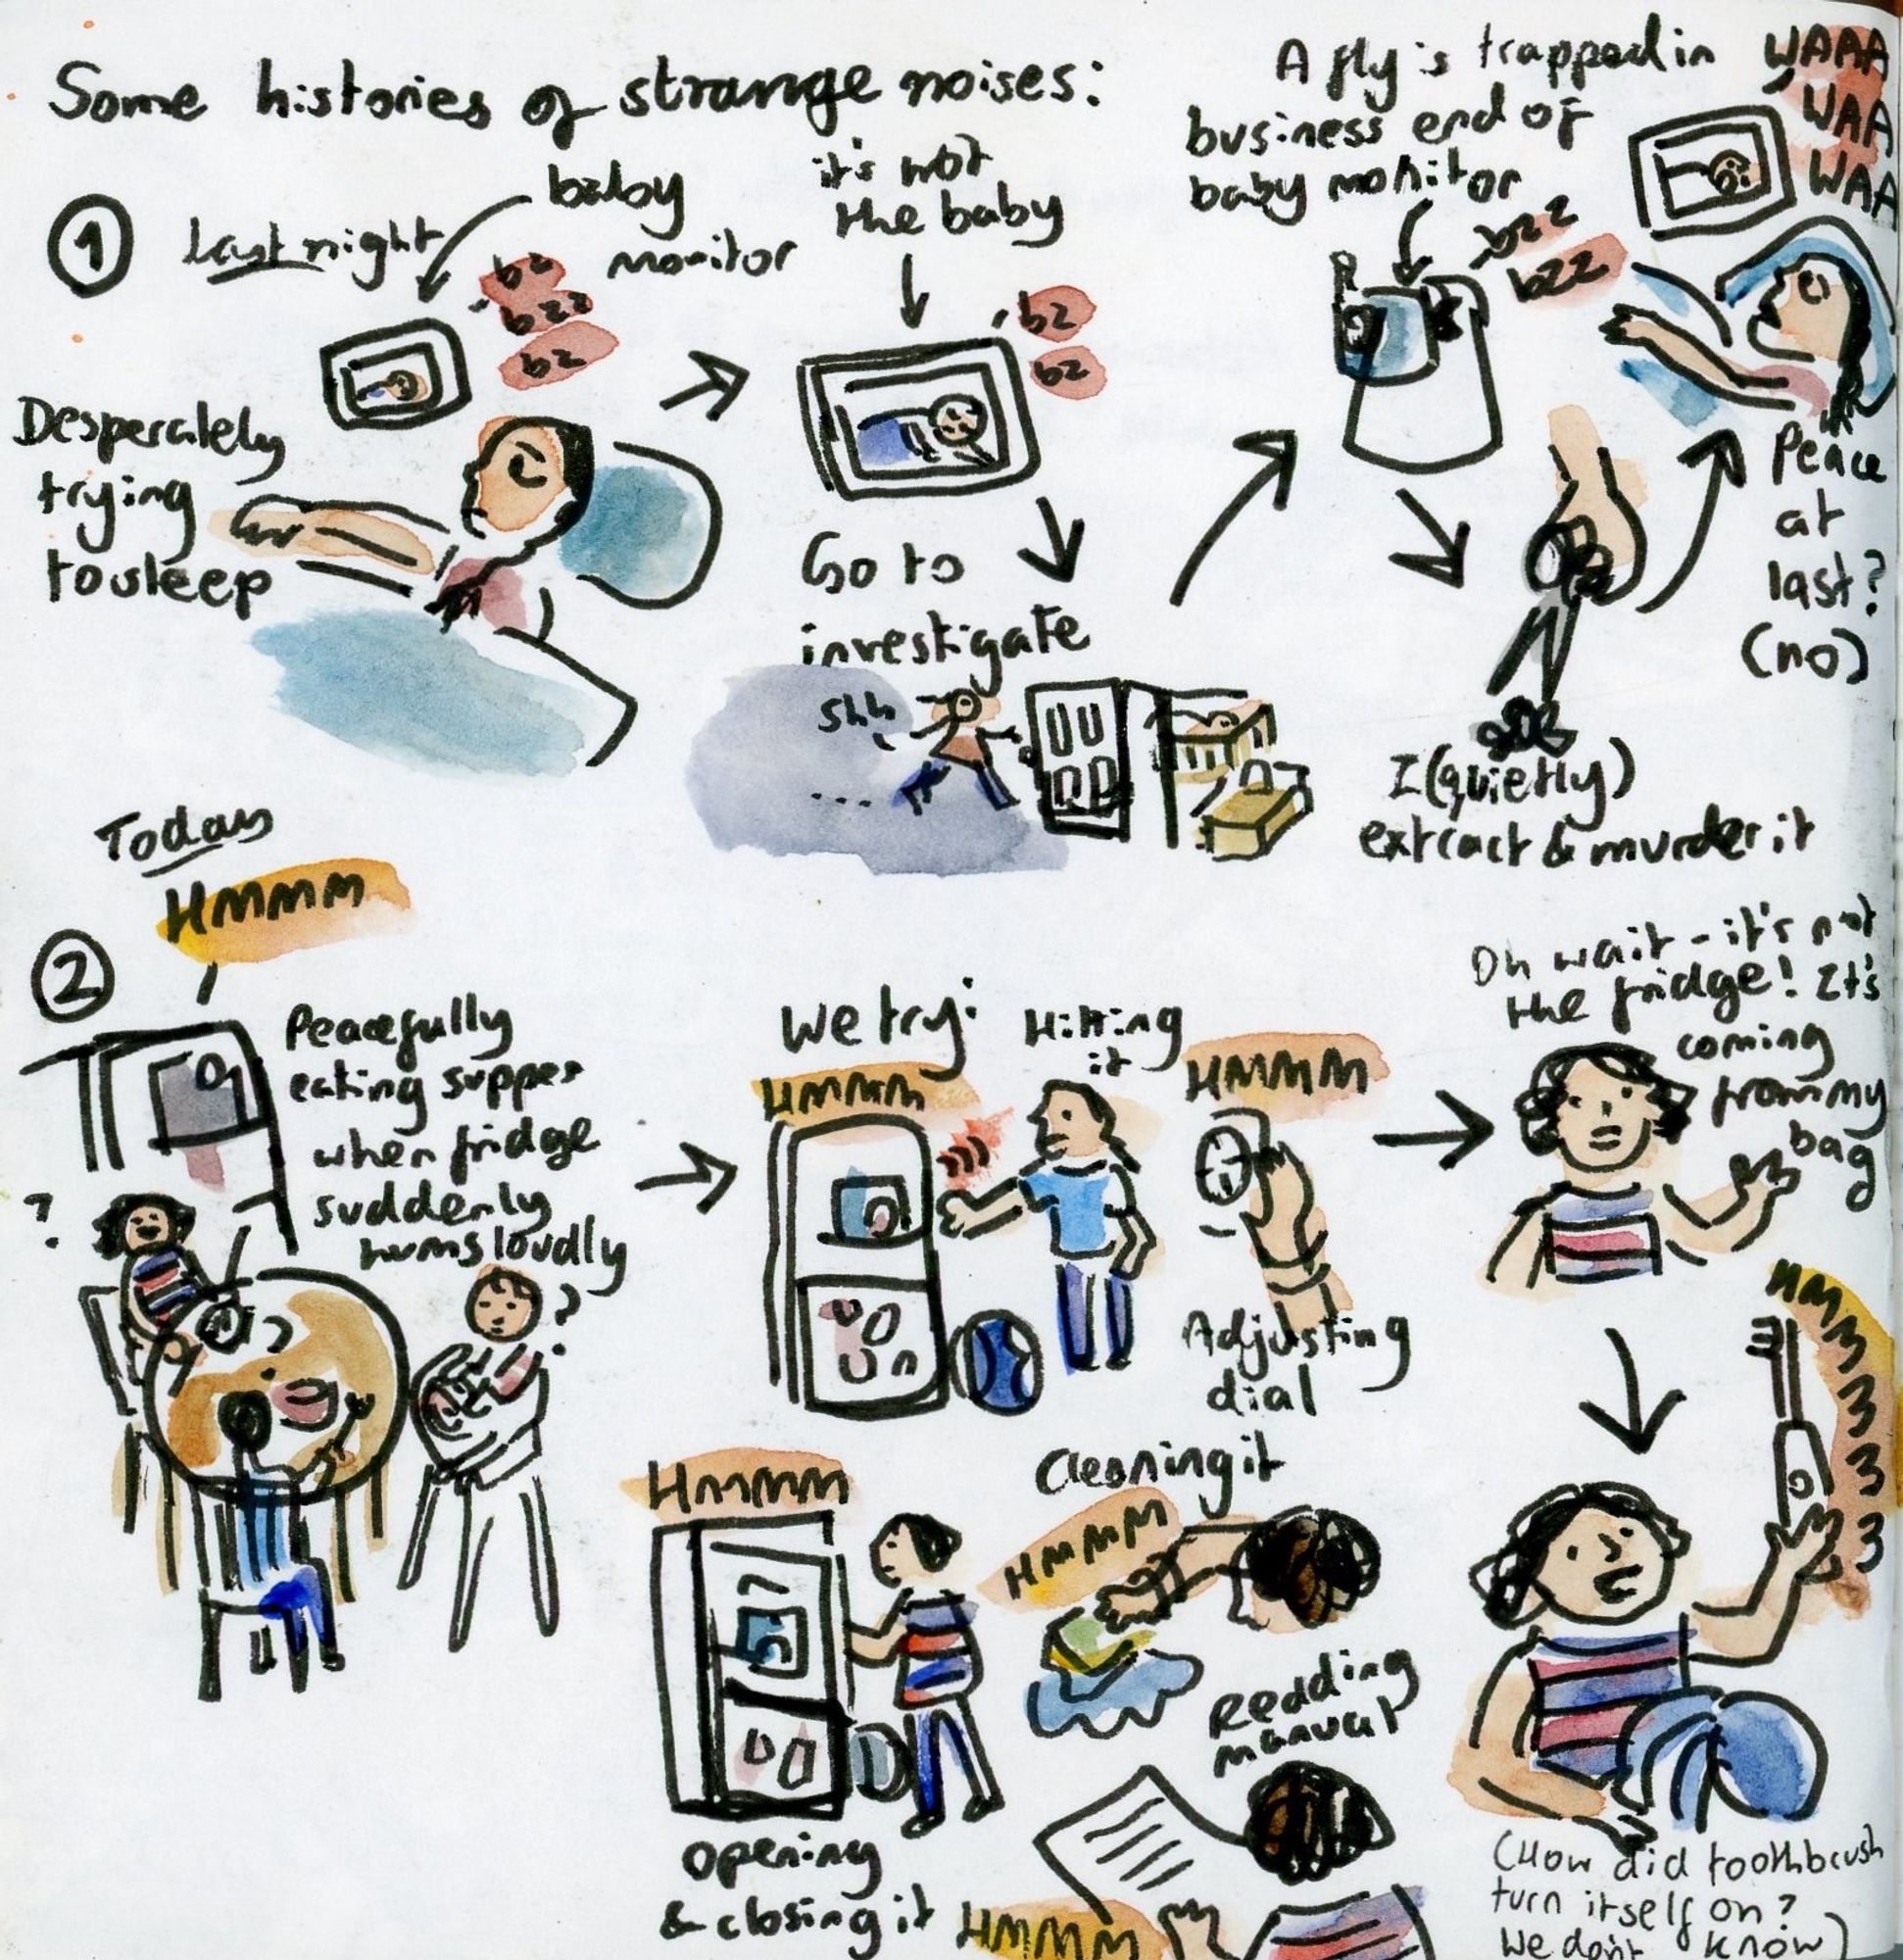 Some histories of strange noises:
1
Last night
baby
monitor
bz
bzz
bz
Desperately
trying
to sleep
it's not
the baby
bz
bz
Go to
investigate
shh
...
A fly is trapped in
business end of
baby monitor
bzz
bzz
I (quietly)
extract & murder it
WAAA
WAA
WAA
Peace
at
last?
(no)
Today
HMMMM
2
Peacefully
eating supper
when fridge
suddenly
hums loudly
?
?
We try:
HMMMM
Hitting
it
HMMMM
Adjusting
dial
HMMMM
Opening
& closing it
Cleaning it
HMMMM
Reading
manual
HMMMM
Oh wait - it's not
the fridge! It's
coming
from my
bag
HMMMMMM
(How did toothbrush
turn itself on?
We don't know)